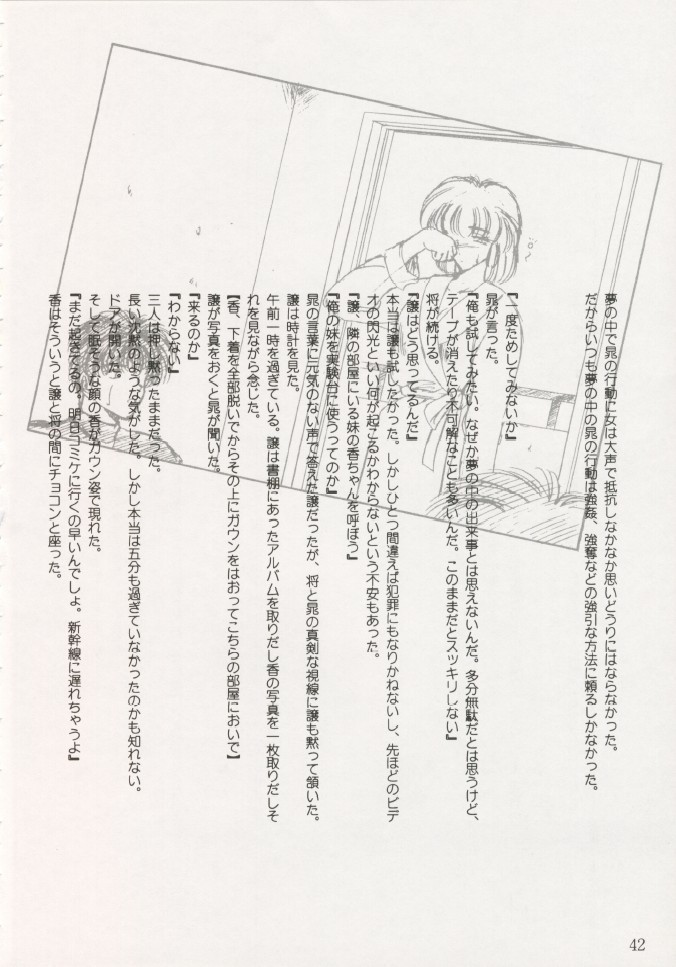 夢の中で晁の行動に女は大声で抵抗しなかなか思いどうりにはならなかった。
だからいつも夢の中の晁の行動は強姦、強奪などの強引な方法に頼るしかなかった。
『一度ためしてみないか』
晁が言った。
『俺も試してみたい。なぜか夢の中の出来事とは思えないんだ。多分無駄だとは思うけど、
テープが消えたり不可解なことも多いんだ。このままだとスッキリしない』
将が続ける。
『譲はどう思ってるんだ』
本当は譲も試したかった。しかしひとつ間違えば犯罪にもなりかねないし、先ほどのビデ
オの閃光といい何が起こるかわからないという不安もあった。
『譲、隣の部屋にいる妹の香ちゃんを呼ぼう』
『俺の妹を実験台に使うってのか』
晁の言葉に元気のない声で答えた譲だったが、将と晁の真剣な視線に譲も黙って頷いた。
譲は時計を見た。
午前一時を過ぎている。譲は書棚にあったアルバムを取りだし香の写真を一枚取りだしそ
れを見ながら念じた。
【香、下着を全部脱いでからその上にガウンをはおってこちらの部屋においで】
譲が写真をおくと晁が聞いた。
『来るのか』
『わからない』
三人は押し黙ったままだった。
長い沈黙のような気がした。しかし本当は五分も過ぎていなかったのかも知れない。
ドアが開いた。
そして眠そうな顔の香がガウン姿で現れた。
『まだ起きてるの。明日コミケに行くの早いんでしょ。新幹線に遅れちゃうよ』
香はそういうと譲と将の間にチョコンと座った。
42